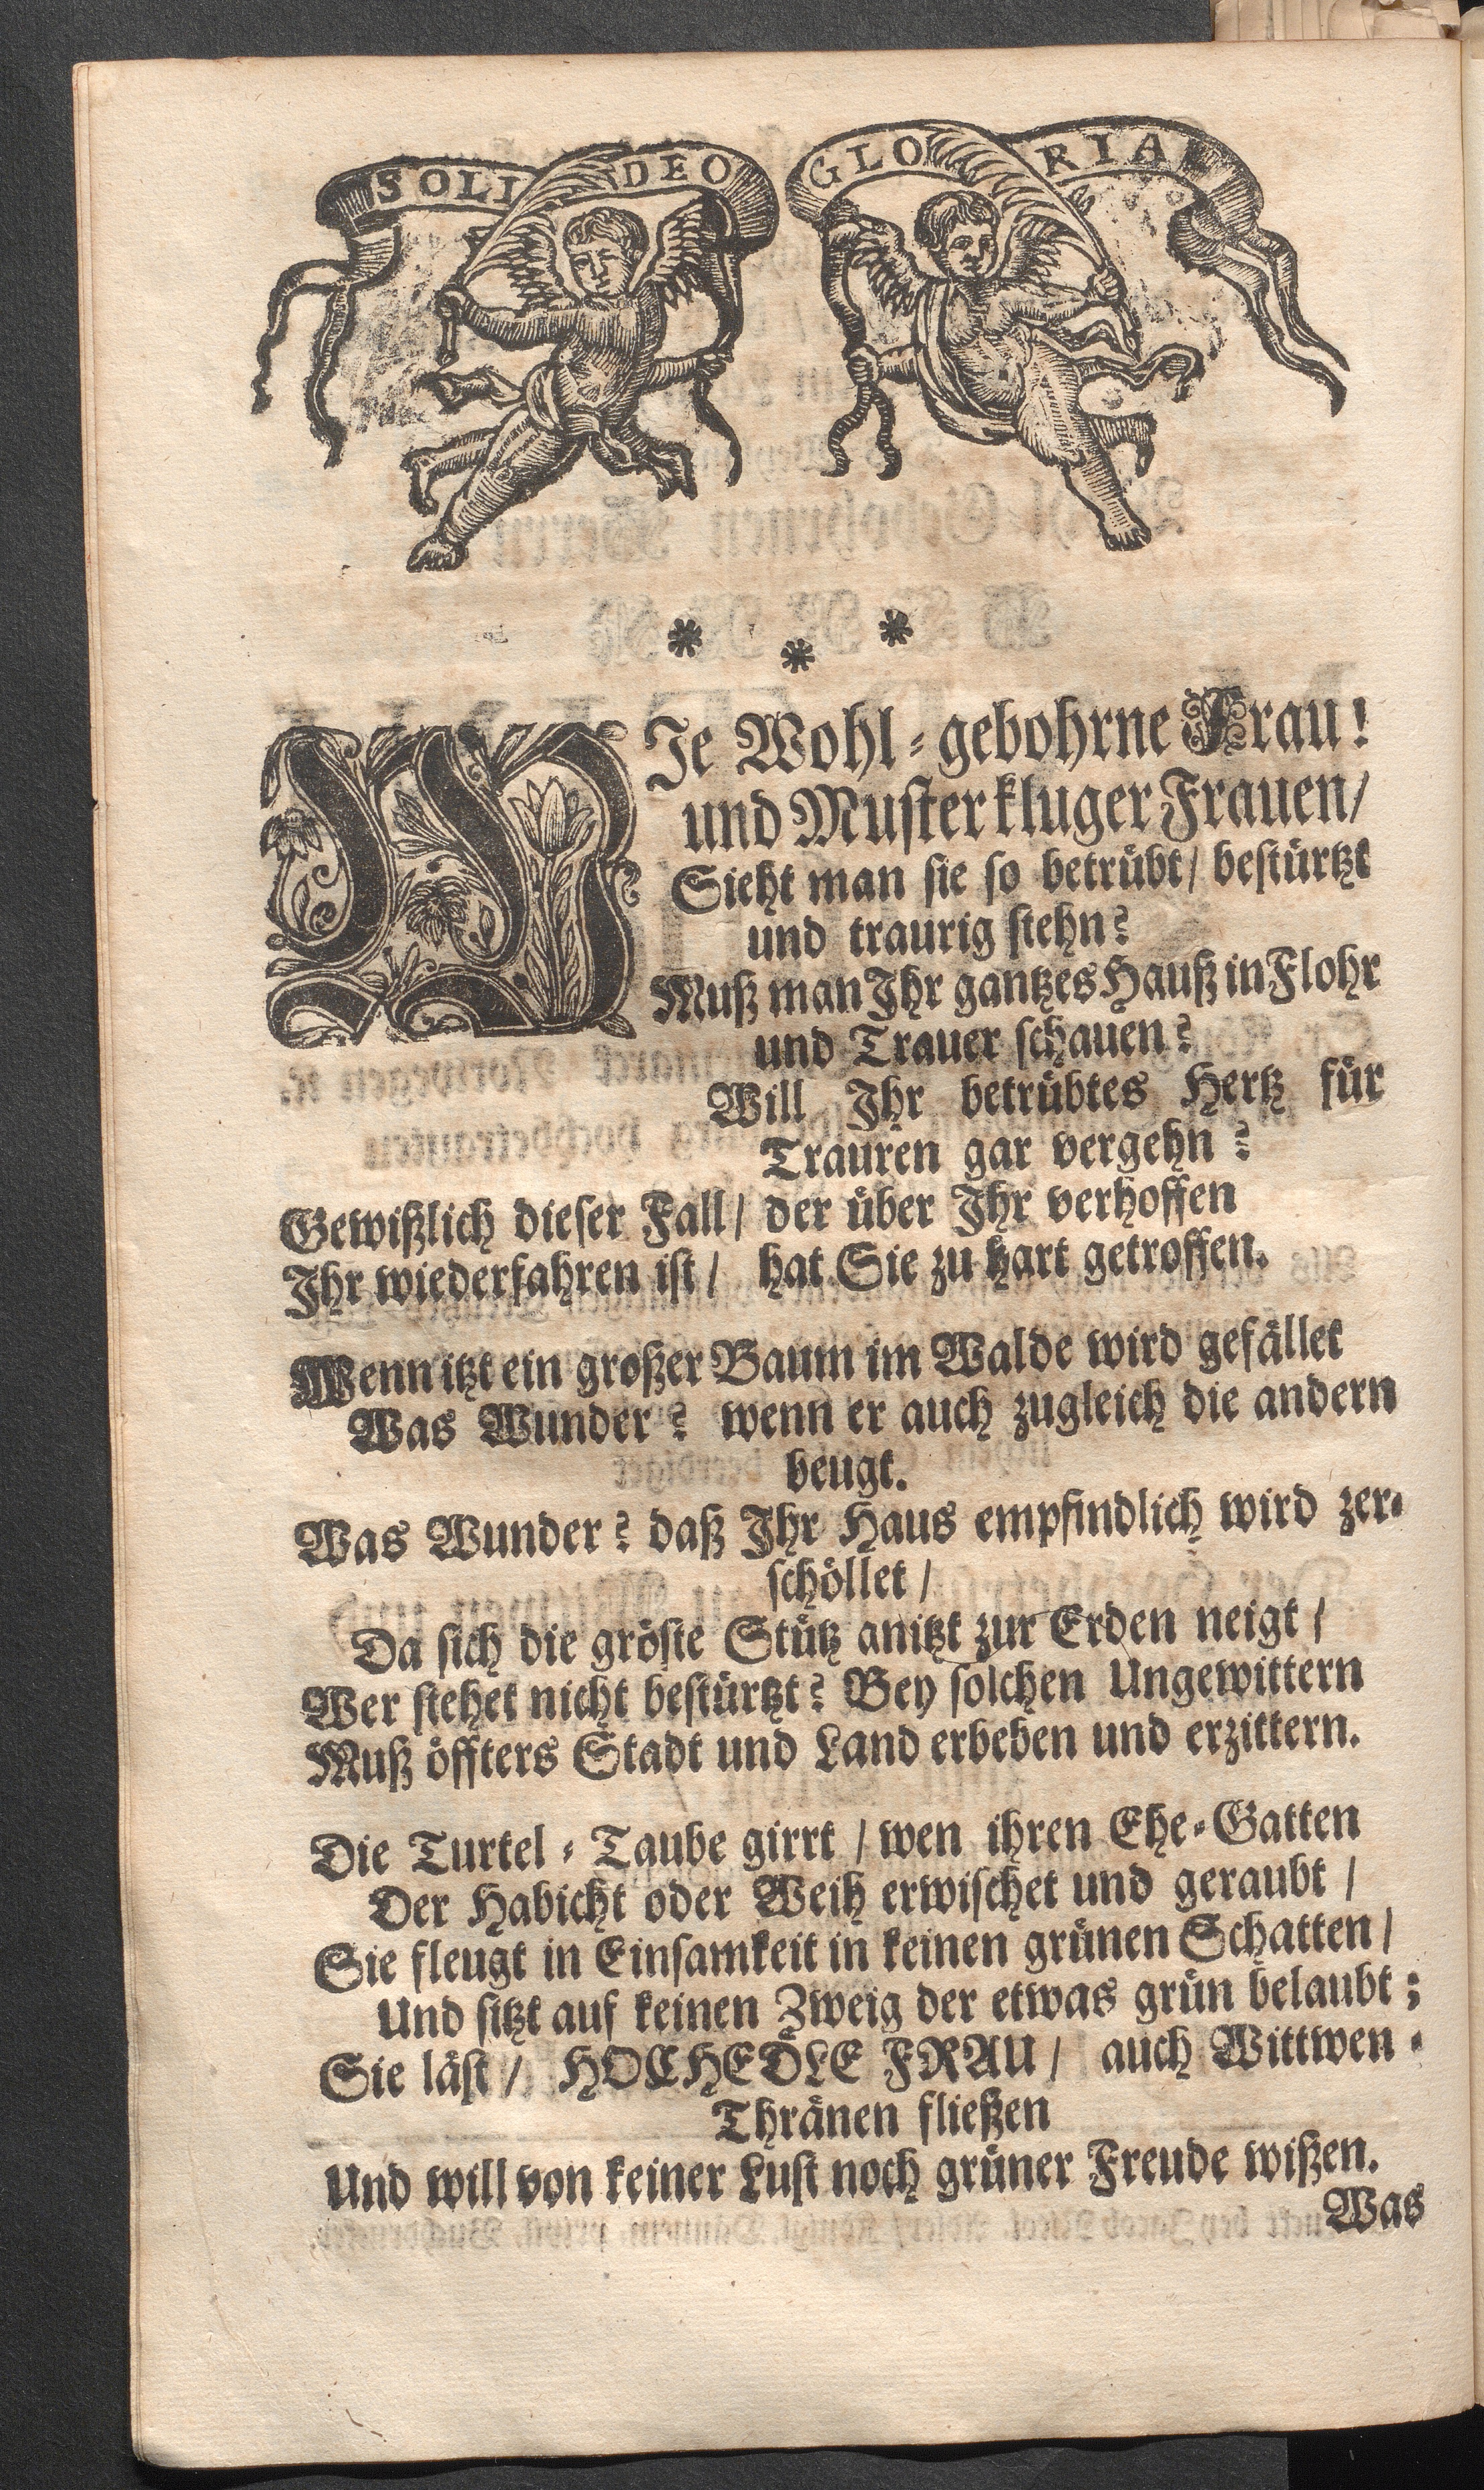 SOLI DEO GLORIA
* * *
WJe Wohl-gebohrne Frau!
und Muster kluger Frauen/
Sieht man sie so betrübt/ bestürtzt
und traurig stehn?
Muß man Jhr gantzes Hauß in Flohr
und Trauer schauen?
Will Jhr betrübtes Hertz für
Trauren gar vergehn?
Gewißlich dieser Fall/ der über Jhr verhoffen
Jhr wiederfahren ist/ hat Sie zu hart getroffen.
Wenn itzt ein großer Baum im Walde wird gefället
Was Wunder? wenn er auch zugleich die andern
beugt.
Was Wunder? daß Jhr Haus empfindlich wird zer-
schöllet/
Da sich die gröste Stütz anitzt zur Erden neigt/
Wer stehet nicht bestürtzt? Bey solchen Ungewittern
Muß öffters Stadt und Land erbeben und erzittern.
Die Turtel-Taube girrt/ wen ihren Ehe-Gatten
Der Habicht oder Weih erwischet und geraubt/
Sie fleugt in Einsamkeit in keinen grünen Schatten/
Und sitzt auf keinen Zweig der etwas grün belaubt;
Sie läst/ HOCHEDLE FRAU/ auch Wittwen-
Thränen fließen
Und will von keiner Lust noch grüner Freude wißen.
Was